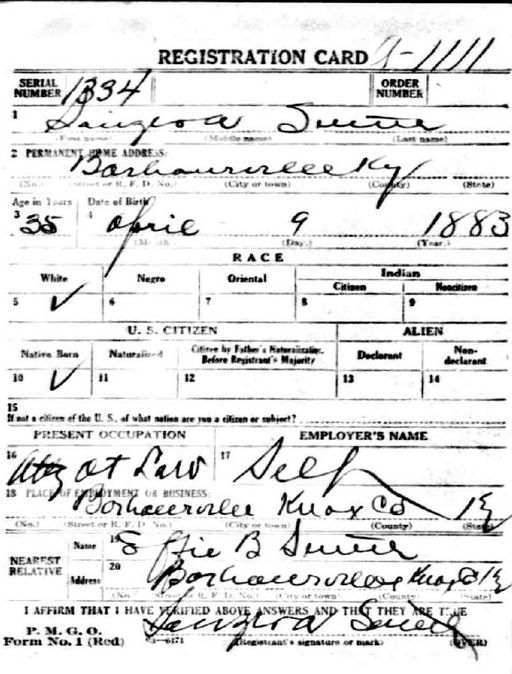 REGISTRATION CARD A-1111
SERIAL NUMBER 1334 ORDER NUMBER
1
(First name) (Middle name) (Last name)
2 PERMANENT HOME ADDRESS:
Barbourville Ky
(No.) (Street or R. F. D. No.) (City or town) (County) (State)
Age in Years Date of Birth
3 35 4 April 9 1883
(Month.) (Day.) (Year.)
RACE
White Negro Oriental Indian
Citizen Noncitizen
5 ✓ 6 7 8 9
U. S. CITIZEN ALIEN
Native Born Naturalized Citizen by Father's Naturalization Before Registrant's Majority Declarant Non-declarant
10 ✓ 11 12 13 14
15
If not a citizen of the U. S., of what nation are you a citizen or subject?
PRESENT OCCUPATION EMPLOYER'S NAME
16 Atty at Law 17 Self
18 PLACE OF EMPLOYMENT OR BUSINESS:
Barbourville Knox Co Ky
(No.) (Street or R. F. D. No.) (City or town) (County) (State)
NEAREST RELATIVE Name 19 Effie B
Address 20 Barbourville Knox Co Ky
(No. (Street or R. F. D. No.) (City or town) (County) (State)
I AFFIRM THAT I HAVE VERIFIED ABOVE ANSWERS AND THAT THEY ARE TRUE
P. M. G. O.
Form No. 1 (Red) 03—6171 (Registrant's signature or mark) (OVER)